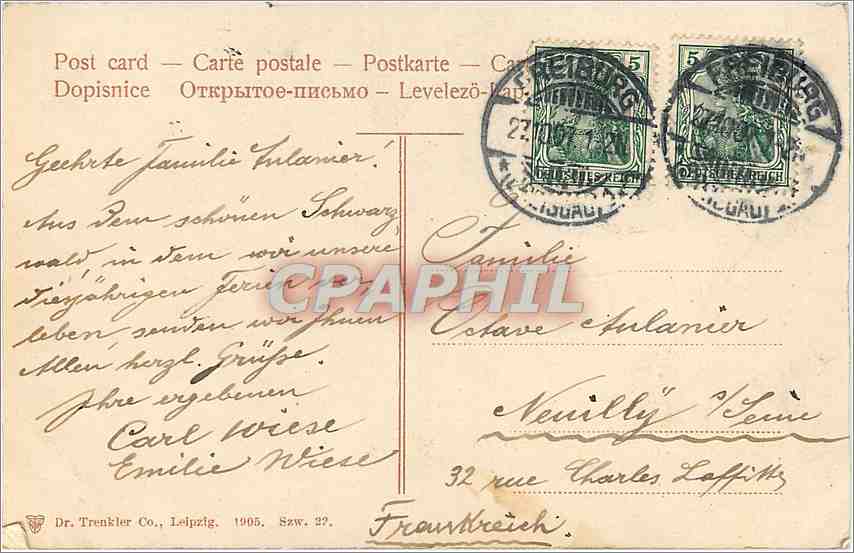 Post card — Carte postale — Postkarte — Ca
Dopisnice Открытое-письмо — Levelezö-Lap
5
5
FREIBURG
FREIBURG
DEUTSCHES REICH
DEUTSCHES REICH
(BREISGAU)
Geehrte Familie Aulanier!
Aus dem schönen Schwarz
wald, in dem wir unsere
diesjährigen Ferien ver
leben, senden wir Ihnen
Allen herzl. Grüße.
Ihre ergebenen
Carl Wiese
Emilie Wiese
Familie
Octave Aulanier
Neuilly s/Seine
32 rue Charles Laffitte
Frankreich.
CPAPHIL
Dr. Trenkler Co., Leipzig. 1905. Szw. 22.